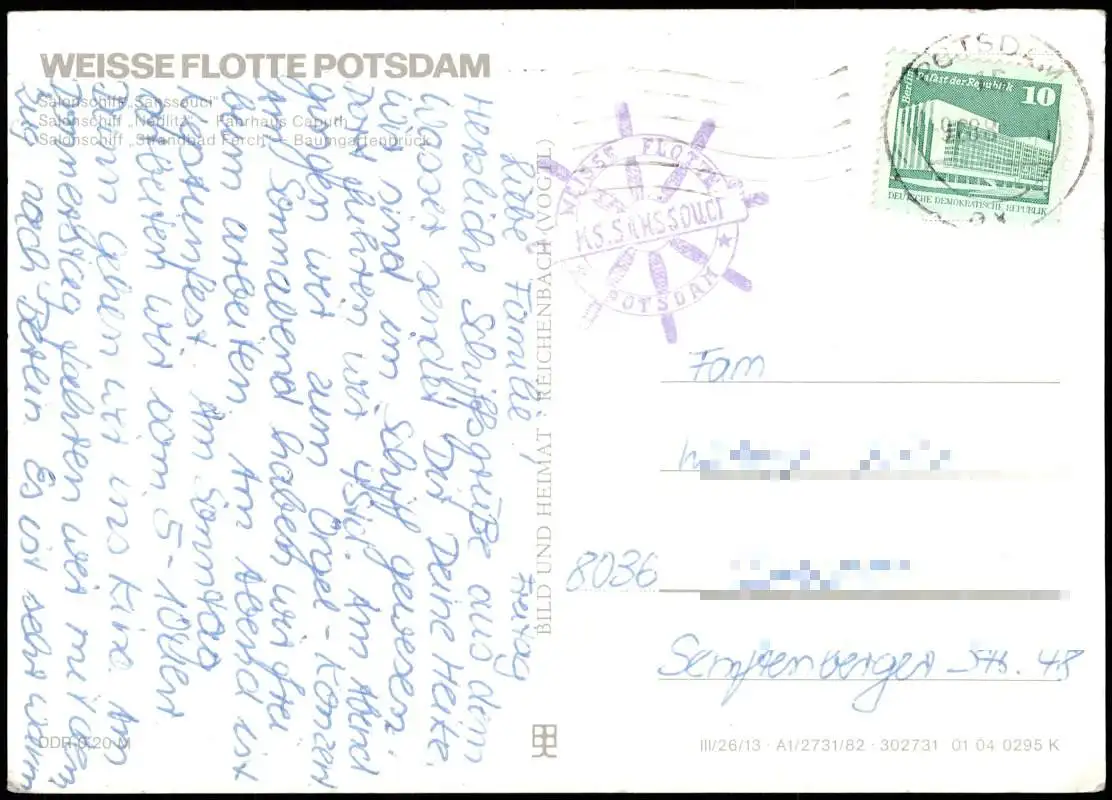 WEISSE FLOTTE POTSDAM
Salonschiff „Sanssouci“
Salonschiff „Nedlitz“ – Fährhaus Caputh
Salonschiff „Strandbad Ferch“ – Baumgartenbrück
Freitag
Liebe Familie,
Herzliche Schiffsgrüße aus dem
Wasser sendet Dir Deine Heike.
Wir sind im Schiff gewesen.
Dort fuhren wir 4Std. Am Abend
gehen wir zum Orgel-Konzert
Am Sonnabend haben wir frei
zum arbeiten. Am Abend ist
Neptunfest. Am Sonntag
arbeiten wir vom 5-10Uhr
Dann gehen wir ins Kino. Am
Donnerstag fahren wir mit dem
Zug nach Berlin. Es ist sehr warm
BILD UND HEIMAT · REICHENBACH (VOGTL)
DDR 0,20 M
WEISSE FLOTTE
M.S. SANSSOUCI
POTSDAM
POTSDAM
Berlin Palast der Republik
10
DEUTSCHE DEMOKRATISCHE REPUBLIK
Fam
8036
Senftenberger Str. 48
III/26/13 · A1/2731/82 · 302731 01 04 0295 K